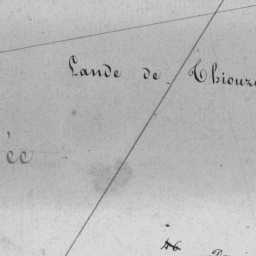 Lande de Thiouz
ée